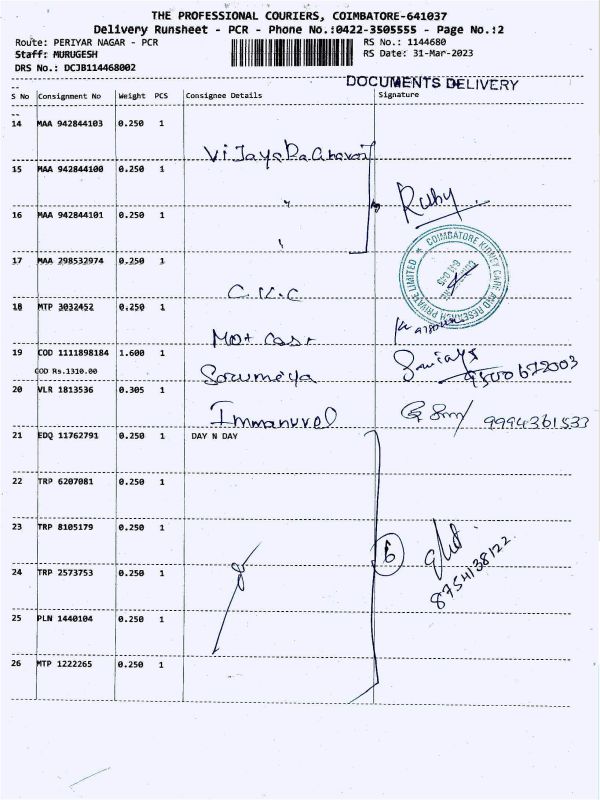 THE PROFESSIONAL COURIERS, COIMBATORE-641037
Delivery Runsheet - PCR - Phone No.:0422-3505555 - Page No.:2
Route: PERIYAR NAGAR - PCR RS No.: 1144680
Staff: MURUGESH RS Date: 31-Mar-2023
DRS No.: DCJB114468002
DOCUMENTS DELIVERY
S No Consignment No Weight PCS Consignee Details Signature
14 MAA 942844103 0.250 1
15 MAA 942844100 0.250 1
16 MAA 942844101 0.250 1
Ruby
17 MAA 298532974 0.250 1 C.K.C
COIMBATORE KIDNEY CARE AND RESEARCH PRIVATE LIMITED
18 MTP 3032452 0.250 1 Mot Cast
19 COD 1111898184 1.600 1 Sorumeya
COD Rs.1310.00
9500672003
20 VLR 1813536 0.305 1 Immanuvel
9994361533
21 EDQ 11762791 0.250 1 DAY N DAY
22 TRP 6207081 0.250 1
23 TRP 8105179 0.250 1
6
24 TRP 2573753 0.250 1
8754138122
25 PLN 1440104 0.250 1
26 MTP 1222265 0.250 1